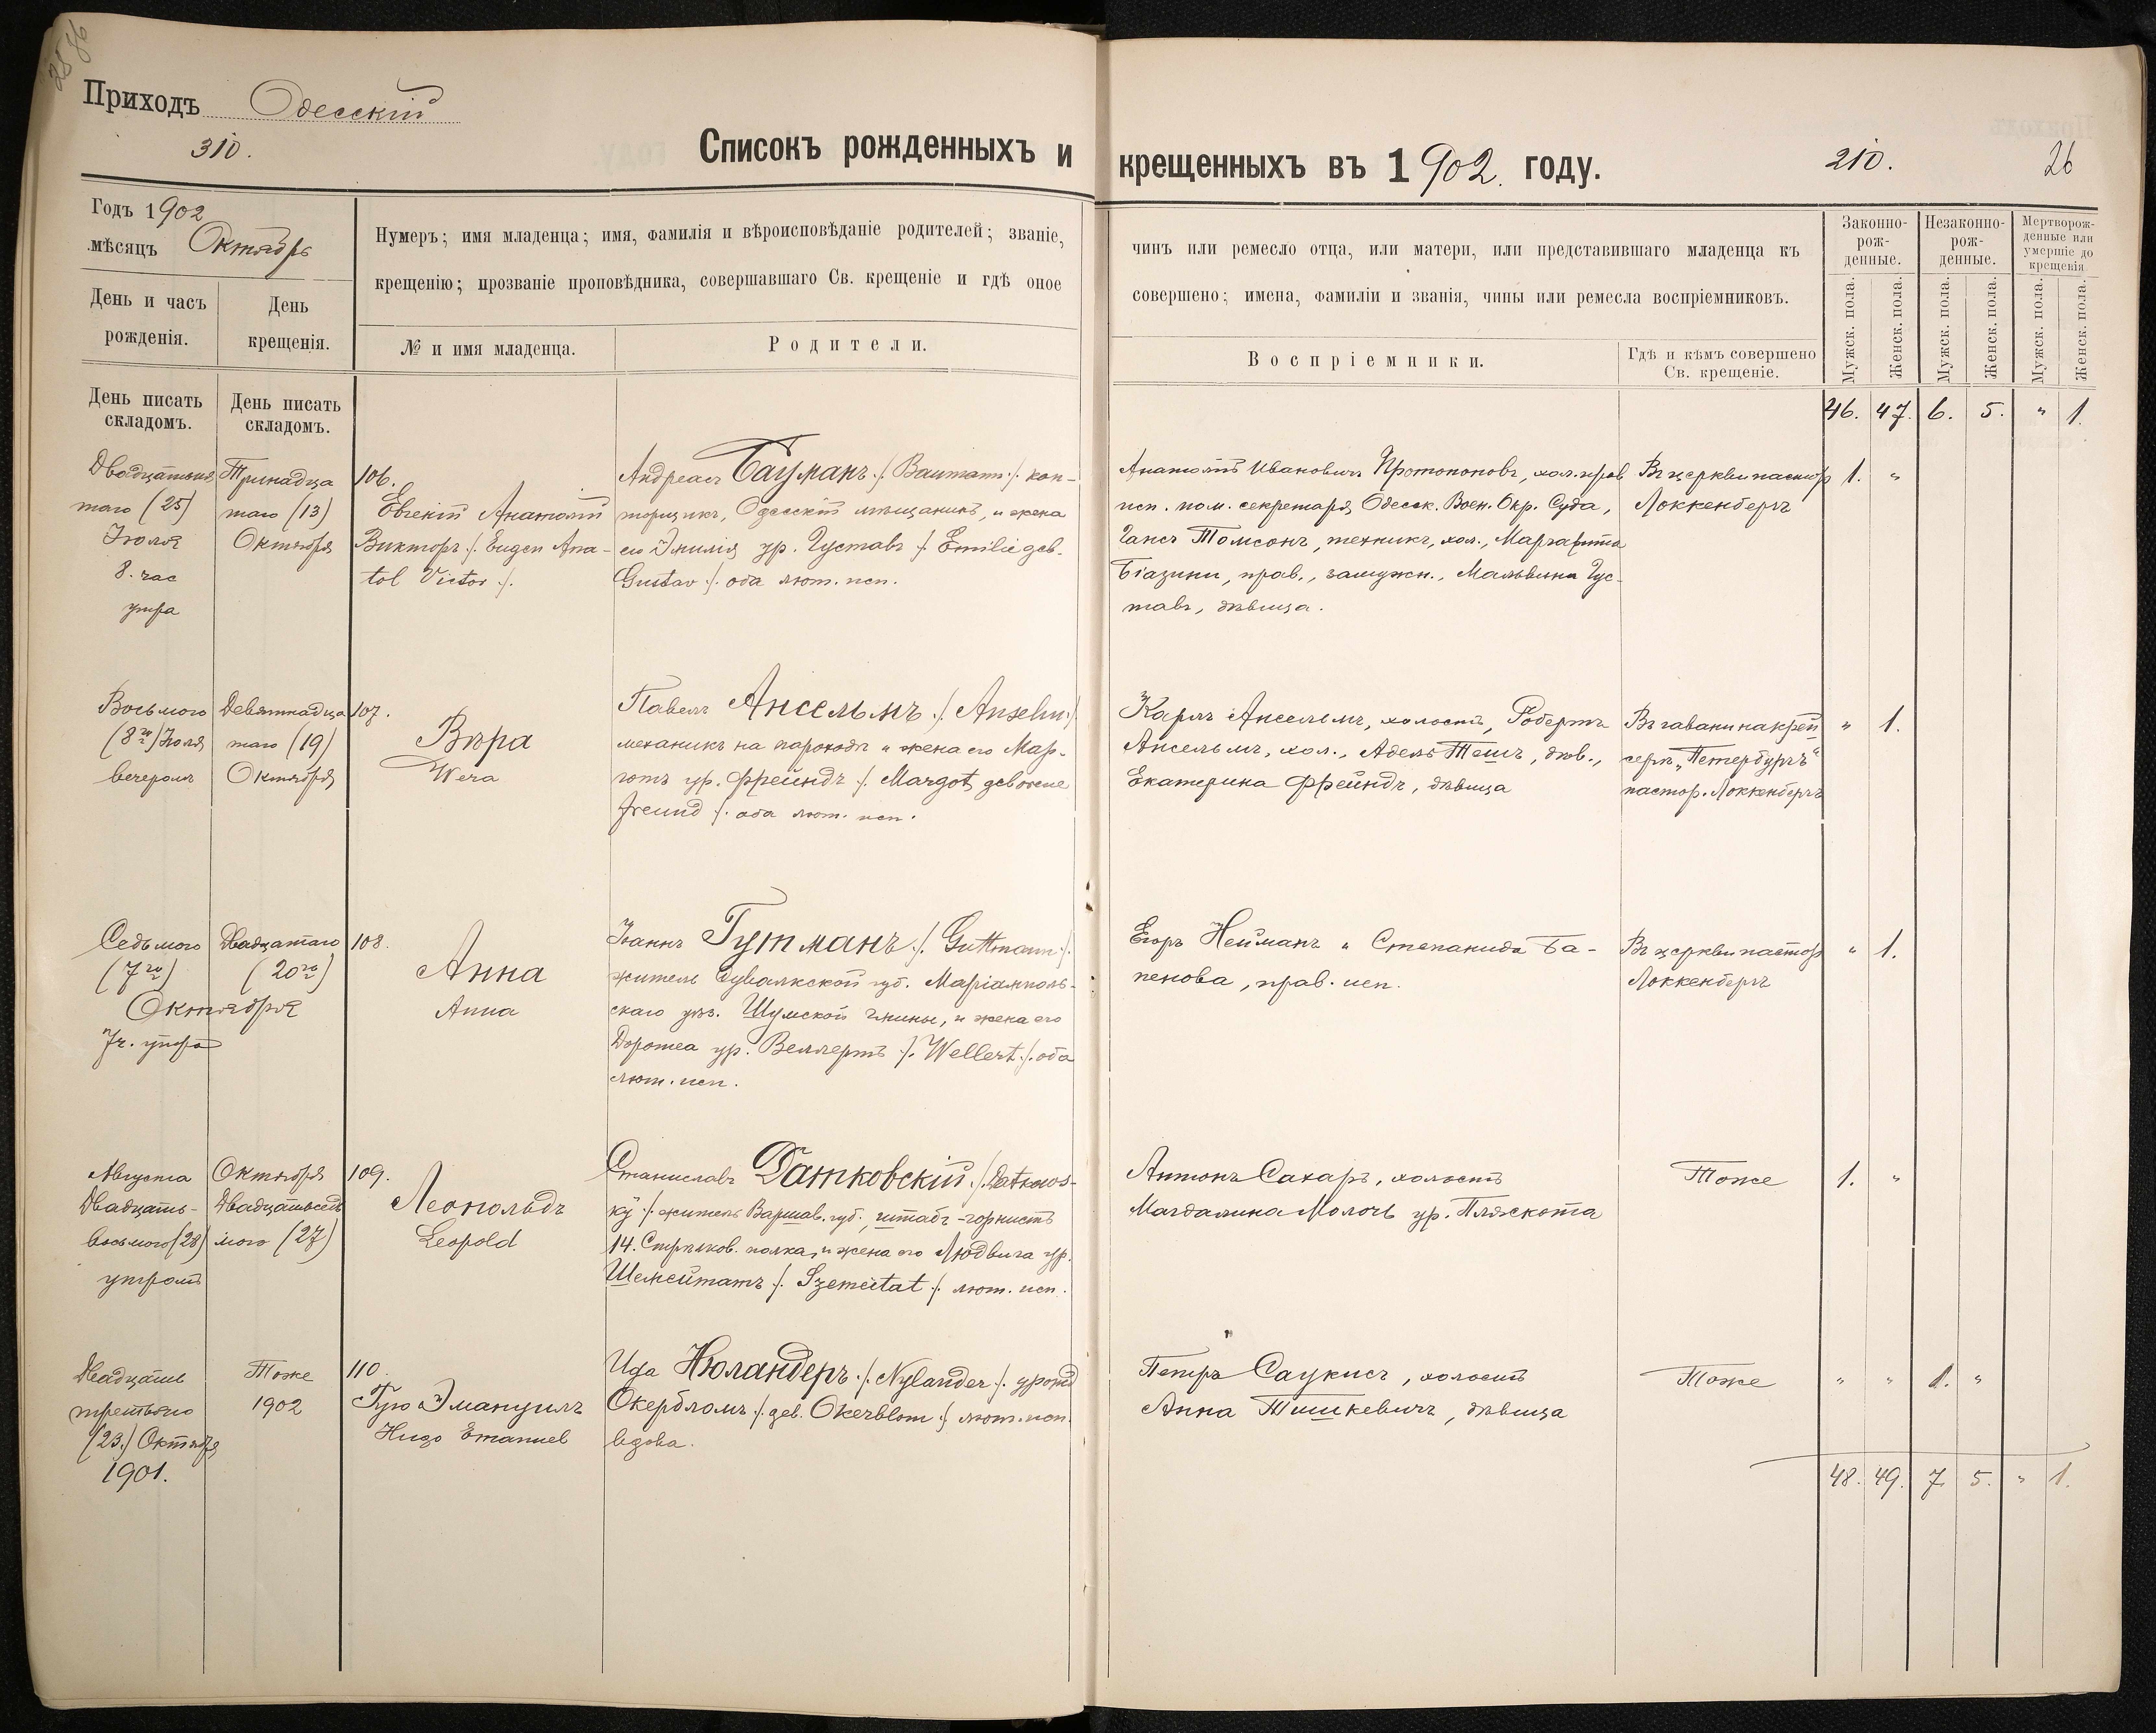 2586
Приходъ Одесскій
310.
Списокъ рожденныхъ и крещенныхъ въ 1902. году.
210.
26
Годъ 1902
мѣсяцъ Октябрь
День и часъ
рожденія.
День
крещенія.
Нумеръ; имя младенца; имя, фамилія и вѣроисповѣданіе родителей; званіе,
крещенію; прозваніе проповѣдника, совершавшаго Св. крещеніе и гдѣ оное
№ и имя младенца.
Родители.
чинъ или ремесло отца, или матери, или представившаго младенца къ
совершено; имена, фамиліи и званія, чины или ремесла воспріемниковъ.
Воспріемники.
Гдѣ и кѣмъ совершено
Св. крещеніе.
Законно-
рож-
денные.
Незаконно-
рож-
денные.
Мертворож-
денные или
умершіе до
крещенія
Мужск. пола.
Женск. пола.
Мужск. пола.
Женск. пола.
Мужск. пола.
Женск. пола.
День писать
складомъ.
День писать
складомъ.
46. 47. 6. 5. " 1.
Двадцатьпя
таго (25)
Іюля
8. час
утра
Тринадца
таго (13)
Октября
106.
Евгеній Анатолій
Викторъ /. Eugen Ana-
tol Victor /.
Андреас Бауманъ /. Baumann /. кон-
торщикъ, Одесскій мѣщанинъ, и жена
его Эмилія ур. Густавъ /. Emilie geb.
Gustav /. оба лют. исп.
Анатолій Ивановичъ Протопоповъ, хол. прав
исп. пом. секретаря Одесск. Воен. Окр. Суда,
Гансъ Томсонъ, техникъ, хол., Маргарита
Біазини, прав., замужн., Мальвина Гус-
тавъ, дѣвица.
Въ церкви пастор
Локкенбергъ
1. "
Восьмого
(8го) Іюля
вечеромъ
Девятнадца
таго (19)
Октября
107.
Вѣра
Wera
Павелъ Ансельмъ /. Anselm /.
механикъ на пароходѣ и жена его Мар-
готъ ур. Фрейндъ /. Margot geborene
Freund /. оба лют. исп.
Карлъ Ансельмъ, холостъ, Робертъ
Ансельмъ, хол., Адель Тешъ, дѣв.,
Екатерина Фрейндъ, дѣвица
Въ гавани на крей
серѣ „Петербургъ“
пастор. Локкенбергъ
" 1.
Седьмого
(7го)
Октября
7ч. утра
Двадцатаго
(20го)
108.
Анна
Anna
Іоаннъ Гутманъ /. Guttmann /.
житель Сувалкской губ. Маріамполь-
скаго уѣз. Шумской гмины, и жена его
Доротеа ур. Веллертъ /. Wellert /. оба
лют. исп.
Егоръ Нейманъ и Степанида Ба-
пенова, прав. исп.
Въ церкви пастор
Локкенбергъ
" 1.
Августа
Двадцать-
восьмого (28)
утромъ
Октября
Двадцатьседь
мого (27)
109.
Леопольдъ
Leopold
Станиславъ Датковскій /. Datkows-
ky /. житель Варшав. губ., штабъ-горнистъ
14. Стрѣлков. полка, и жена его Людвига ур.
Шемейтатъ /. Szemeitat /. лют. исп.
Антонъ Сахаръ, холостъ
Магдалина Молочь ур. Пляскота
Тоже
1. "
Двадцать
третьяго
(23.) Октября
1901.
Тоже
1902
110.
Гуго Эмануилъ
Hugo Emanuel
Ида Нюландеръ /. Nylander /. урожд
Окербломъ /. geb. Okerblom /. лют. исп.
вдова.
Петръ Саукисъ, холостъ
Анна Тишкевичъ, дѣвица
Тоже
" " 1. "
48. 49. 7. 5. " 1.